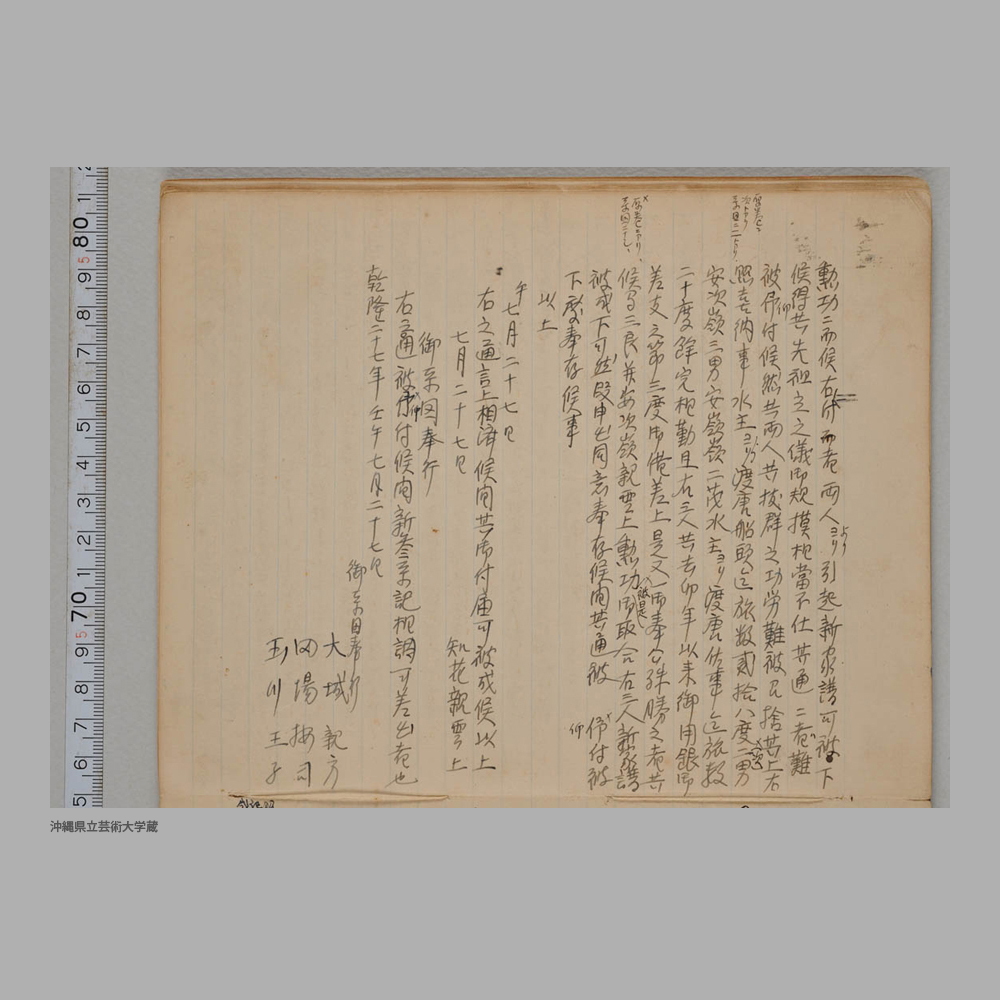 勲功ニ而候右浮而者両人ヨリ引起新家譜可被下
候得共先祖立之儀御規模相當不仕其通ニ者難
被仰付候然共両人共抜群之功労難被見捨其上右
照喜納事水主ヨリ渡唐船頭迄旅数貳拾八度二男
安次嶺三男安嶺嶺二茂水主ヨリ渡唐佐事迄旅数
二十度餘完相勤且右三人共去卯年以来御用銀御
差支之節三度御備差上是又一廉奉公殊勝之者共
候間三良并安次嶺親雲上勲功御取合右三人新家譜
被成下可然段申出同意奉存候間其通被 仰付被
下度奉存候事
以上
午七月二十七日
右之通言上相済候間其御付届可被成候以上
七月二十七日 知花親雲上
御系図奉行
右之通被仰付候間新参系記相調可差出者也
乾隆二十七年壬午七月二十七日
御系図奉行
大城親方
四場按司
玉川王子
沖縄県立芸術大学蔵